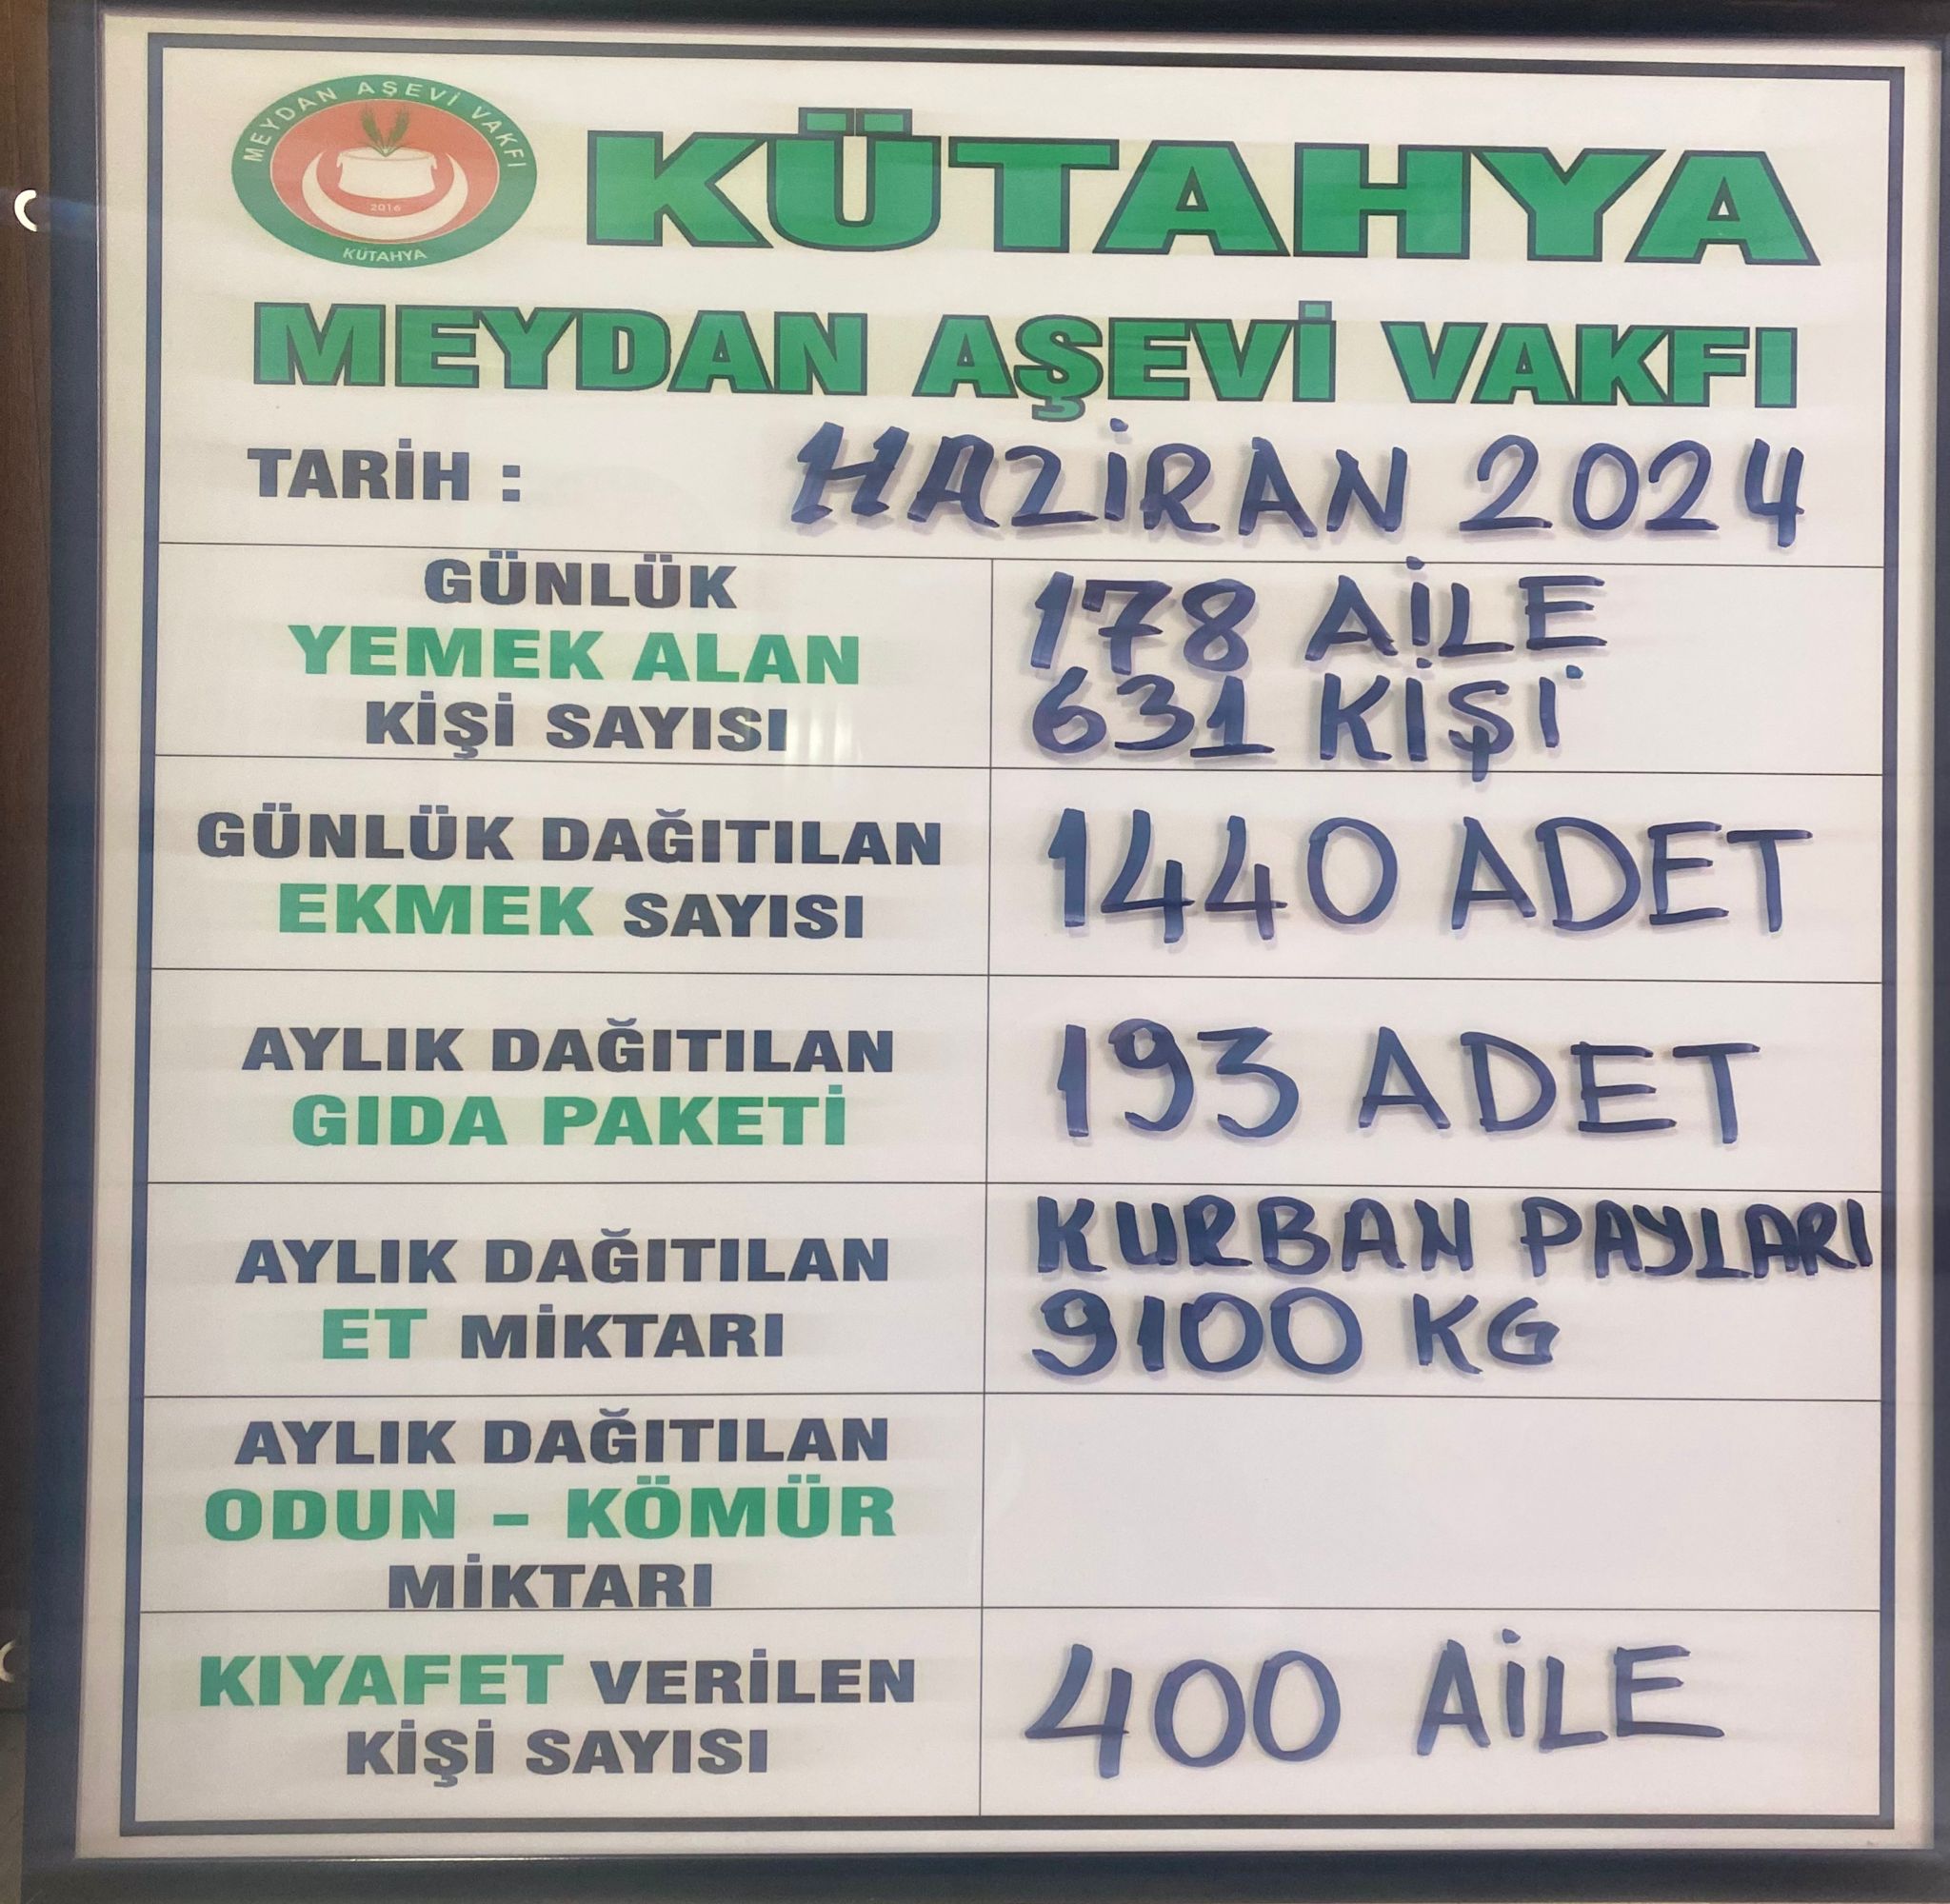 MEYDAN AŞEVİ VAKFI
2016
KÜTAHYA
KÜTAHYA
MEYDAN AŞEVİ VAKFI
TARİH : HAZİRAN 2024
GÜNLÜK
YEMEK ALAN
KİŞİ SAYISI
178 AİLE
631 KİŞİ
GÜNLÜK DAĞITILAN
EKMEK SAYISI
1440 ADET
AYLIK DAĞITILAN
GIDA PAKETİ
193 ADET
AYLIK DAĞITILAN
ET MİKTARI
KURBAN PAYLARI
9100 KG
AYLIK DAĞITILAN
ODUN - KÖMÜR
MİKTARI
KIYAFET VERİLEN
KİŞİ SAYISI
400 AİLE